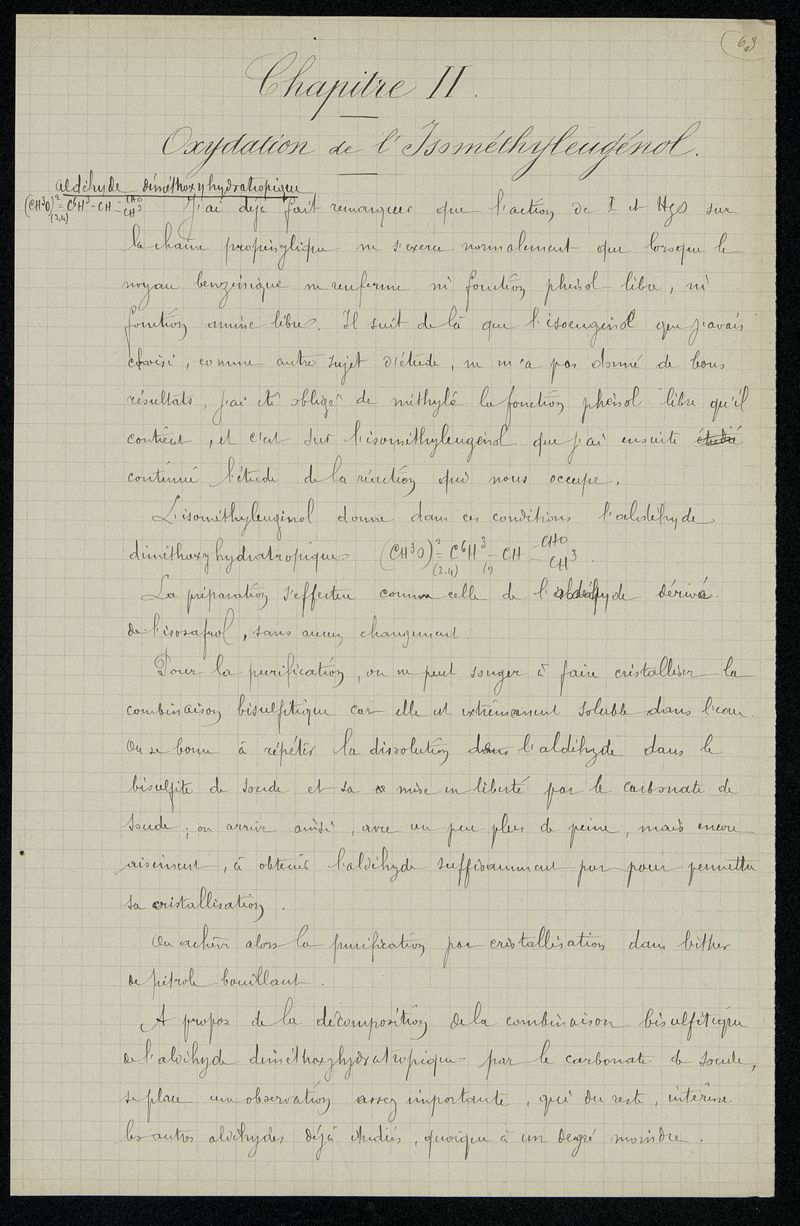 63
Chapitre II.
Oxydation de l'Isométhyleugénol.
aldéhyde diméthoxyhydratropique
(CH³O)² = C⁶H³ - CH = CHO CH³ (3.4)
J'ai déjà fait remarquer que l'action de I et HgO sur
la chaîne propénylique ne s'exerce normalement que lorsque le
noyau benzénique ne renferme ni fonction phénol libre, ni
fonction amine libre. Il suit de là que l'isoeugénol que j'avais
choisi, comme autre sujet d'étude, ne m'a pas donné de bons
résultats, j'ai été obligé de méthylé la fonction phénol libre qu'il
contient, et c'est sur l'isométhyleugénol que j'ai ensuite étudié
continué l'étude de la réaction qui nous occupe.
L'isométhyleugénol donne dans ces conditions l'aldéhyde
diméthoxyhydratropique (CH³O)² = C⁶H³ - CH - CHO CH³ . (3.4) (1)
La préparation s'effectue comme celle de l'aldéhyde dérivé
de l'isosafrol, sans aucun changement.
Pour la purification, on ne peut songer à faire cristalliser la
combinaison bisulfitique car elle est extrêmement soluble dans l'eau.
On se borne à répéter la dissolution dans l'aldéhyde dans le
bisulfite de soude et sa mise en liberté par le carbonate de
soude; on arrive ainsi, avec un peu plus de peine, mais encore
aisément, à obtenir l'aldéhyde suffisamment pur pour permettre
sa cristallisation.
On achève alors la purification par cristallisation dans l'éther
de pétrole bouillant.
A propos de la décomposition de la combinaison bisulfitique
de l'aldéhyde diméthoxyhydratropique par le carbonate de soude,
se place une observation assez importante, qui du reste, intéresse
les autres aldéhydes déjà étudiés, quoique à un degré moindre.